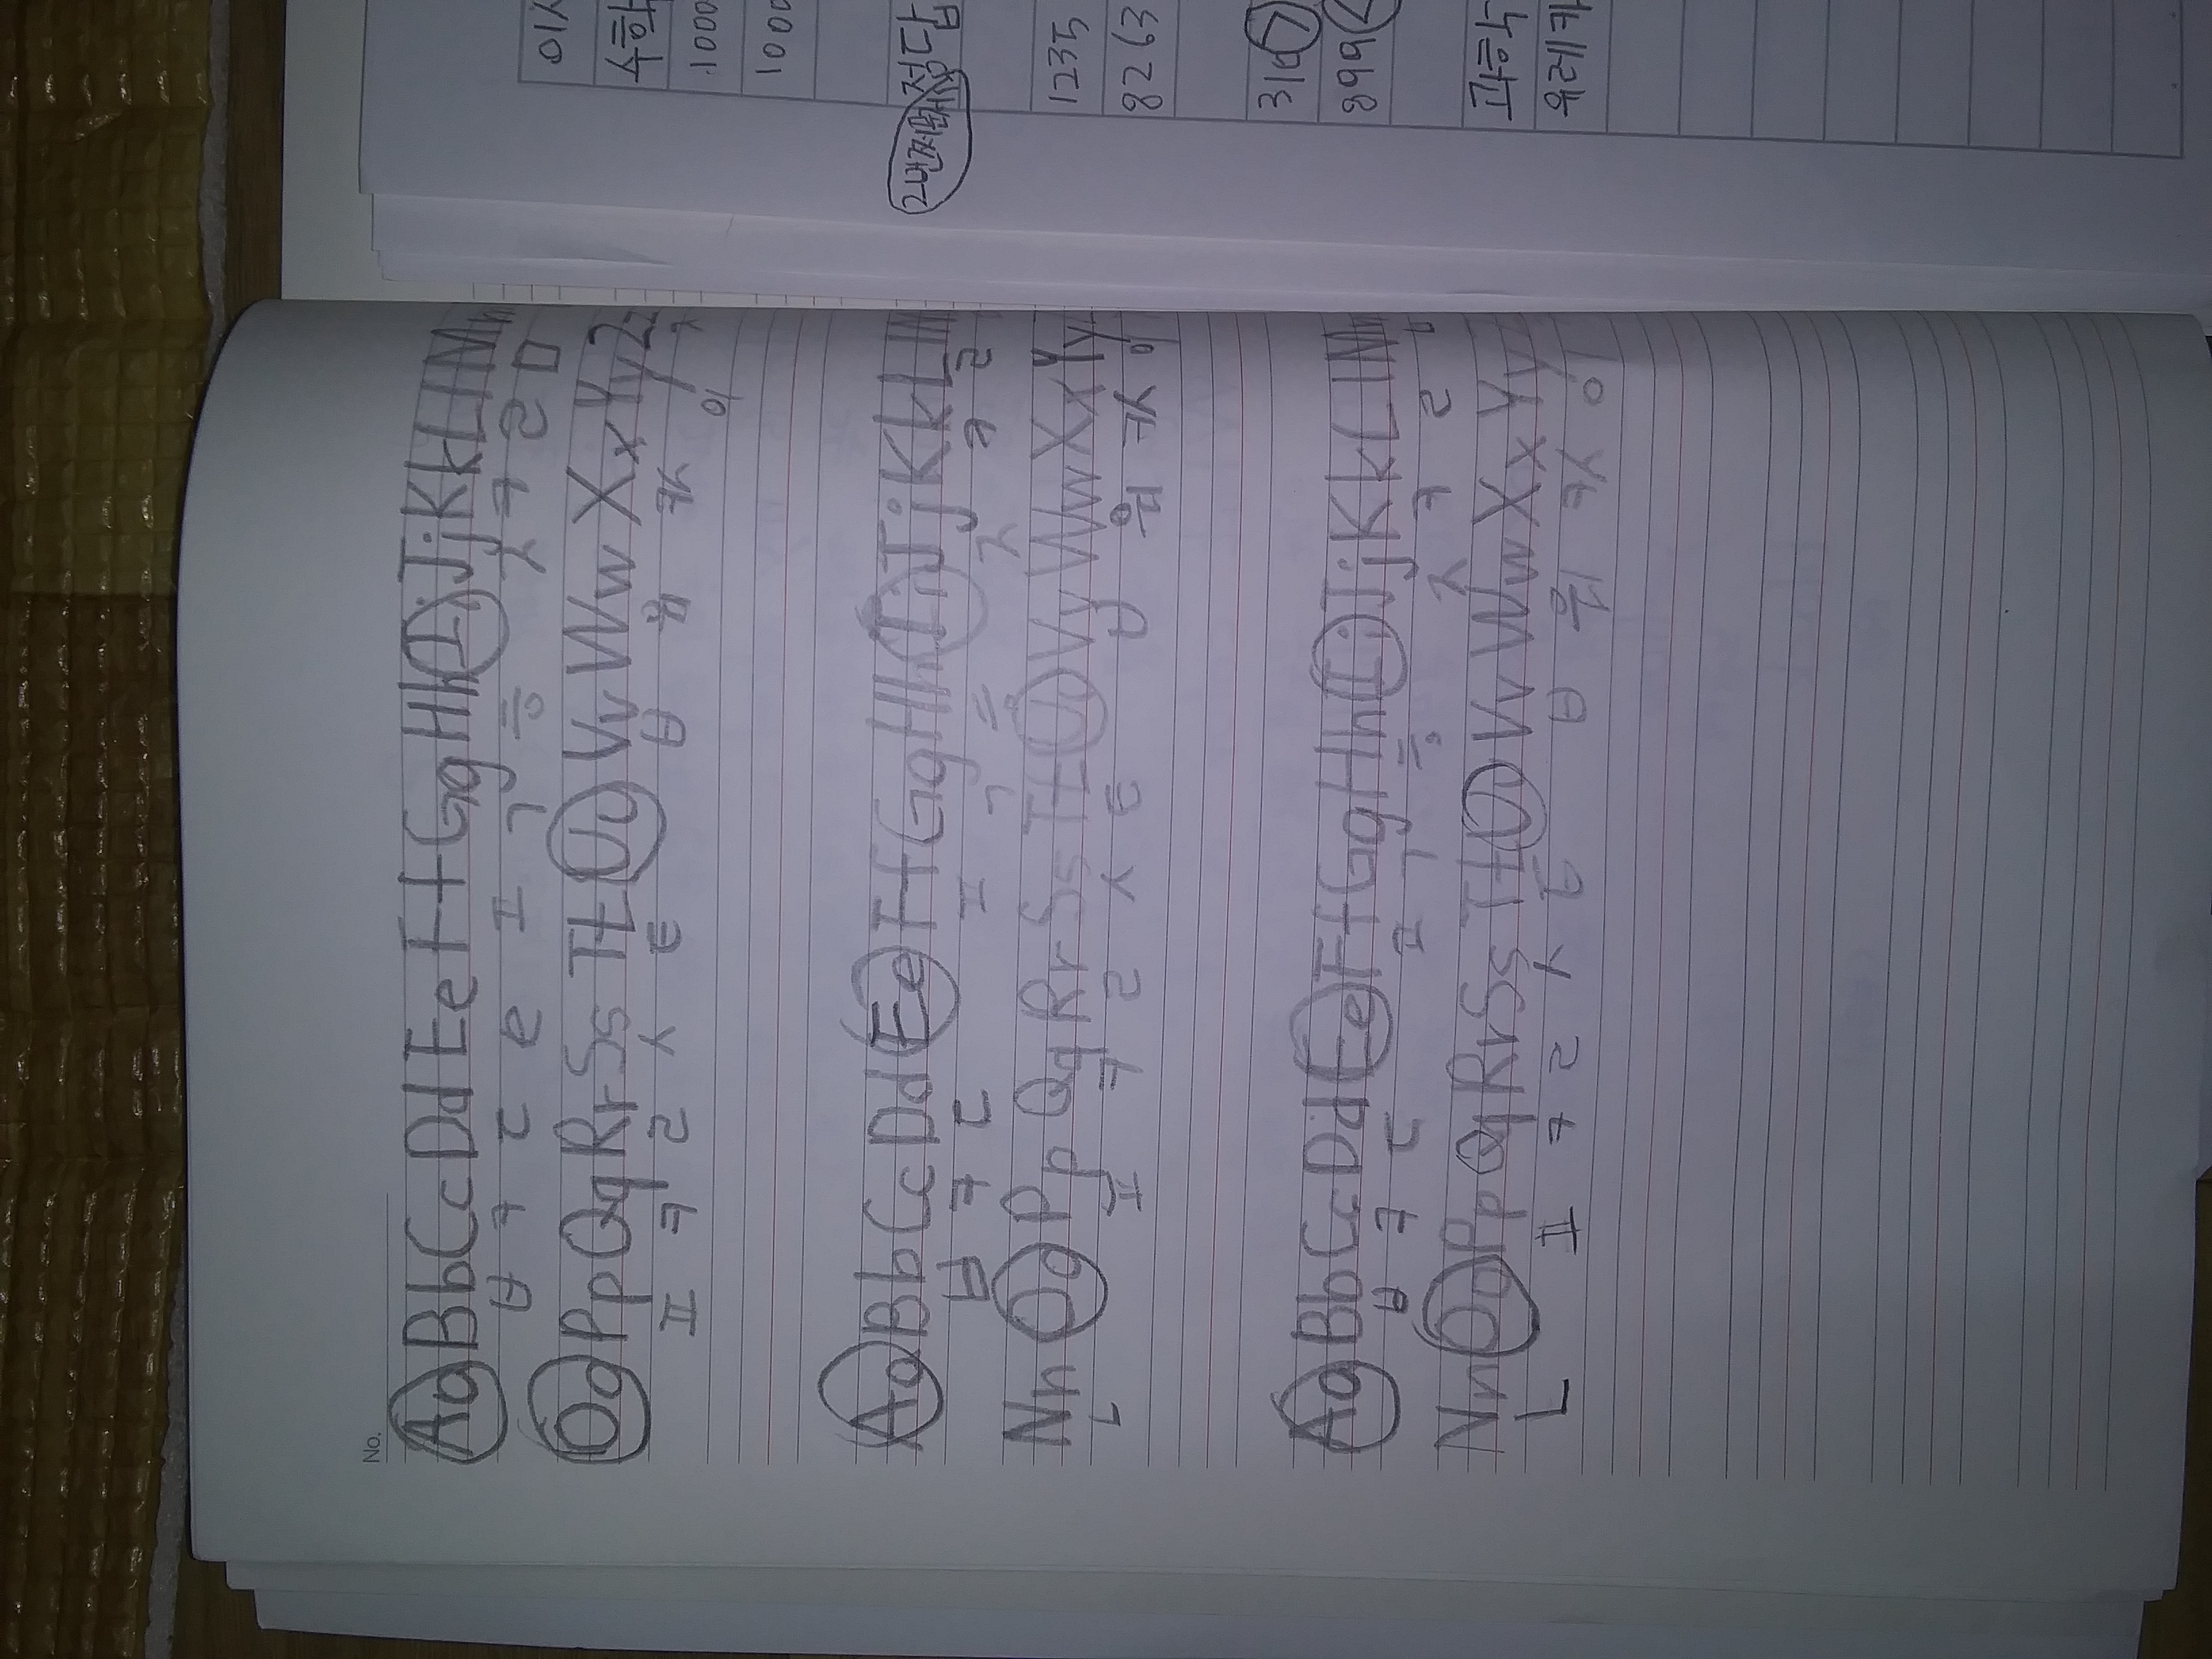 No.
AaBbCcDdEeFfGgHhIiJjKkLlMm
ㅂ ㅋ ㄷ e ㅍ ㄱ ㅎ ㅈ ㅋ ㄹ ㅁ
OoPpQqRrSsTtUuVvWwXxYyZz
ㅍ ㅋ ㄹ ㅅ ㅌ ㅂ ㅋㅅ 이 ㅈ
AaBbCcDdEeFfGgHhIiJjKkLlM
ㅂ ㅋ ㄷ ㅍ ㄱ ㅎ ㅈ ㄹ
NnOoPpQqRrSsTtUuVvWwXxYy
ㄴ ㅍ ㅋ ㄹ ㅅ ㅌ ㅂ 워 ㅋㅅ 이
AaBbCcDdEeFfGgHhIiJjKkLlMm
ㅂ ㅋ ㄷ ㅍ ㄱ ㅎ ㅈ ㅋ ㄹ
NnOoPpQqRrSsTtUuVvWwXxYy
ㄴ ㅍ ㅋ ㄹ ㅅ ㅂ 워 ㅋㅅ 이
수학
1000
1000
정답
1235
8263
319
8999
유레카